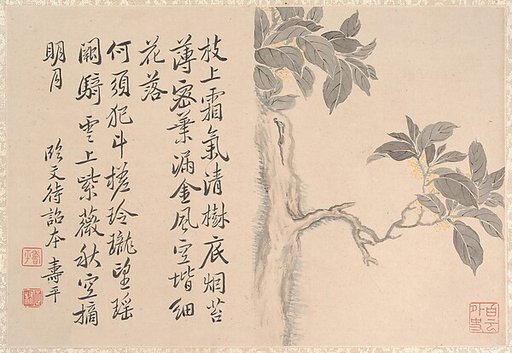 枝上霜氣清樹底烟苔
薄密葉漏金風空堦細
花落
何須犯斗槎玲瓏望瑤
闕騎雲上紫薇秋空摘
明月
臨文待詔本 壽平
白云外史